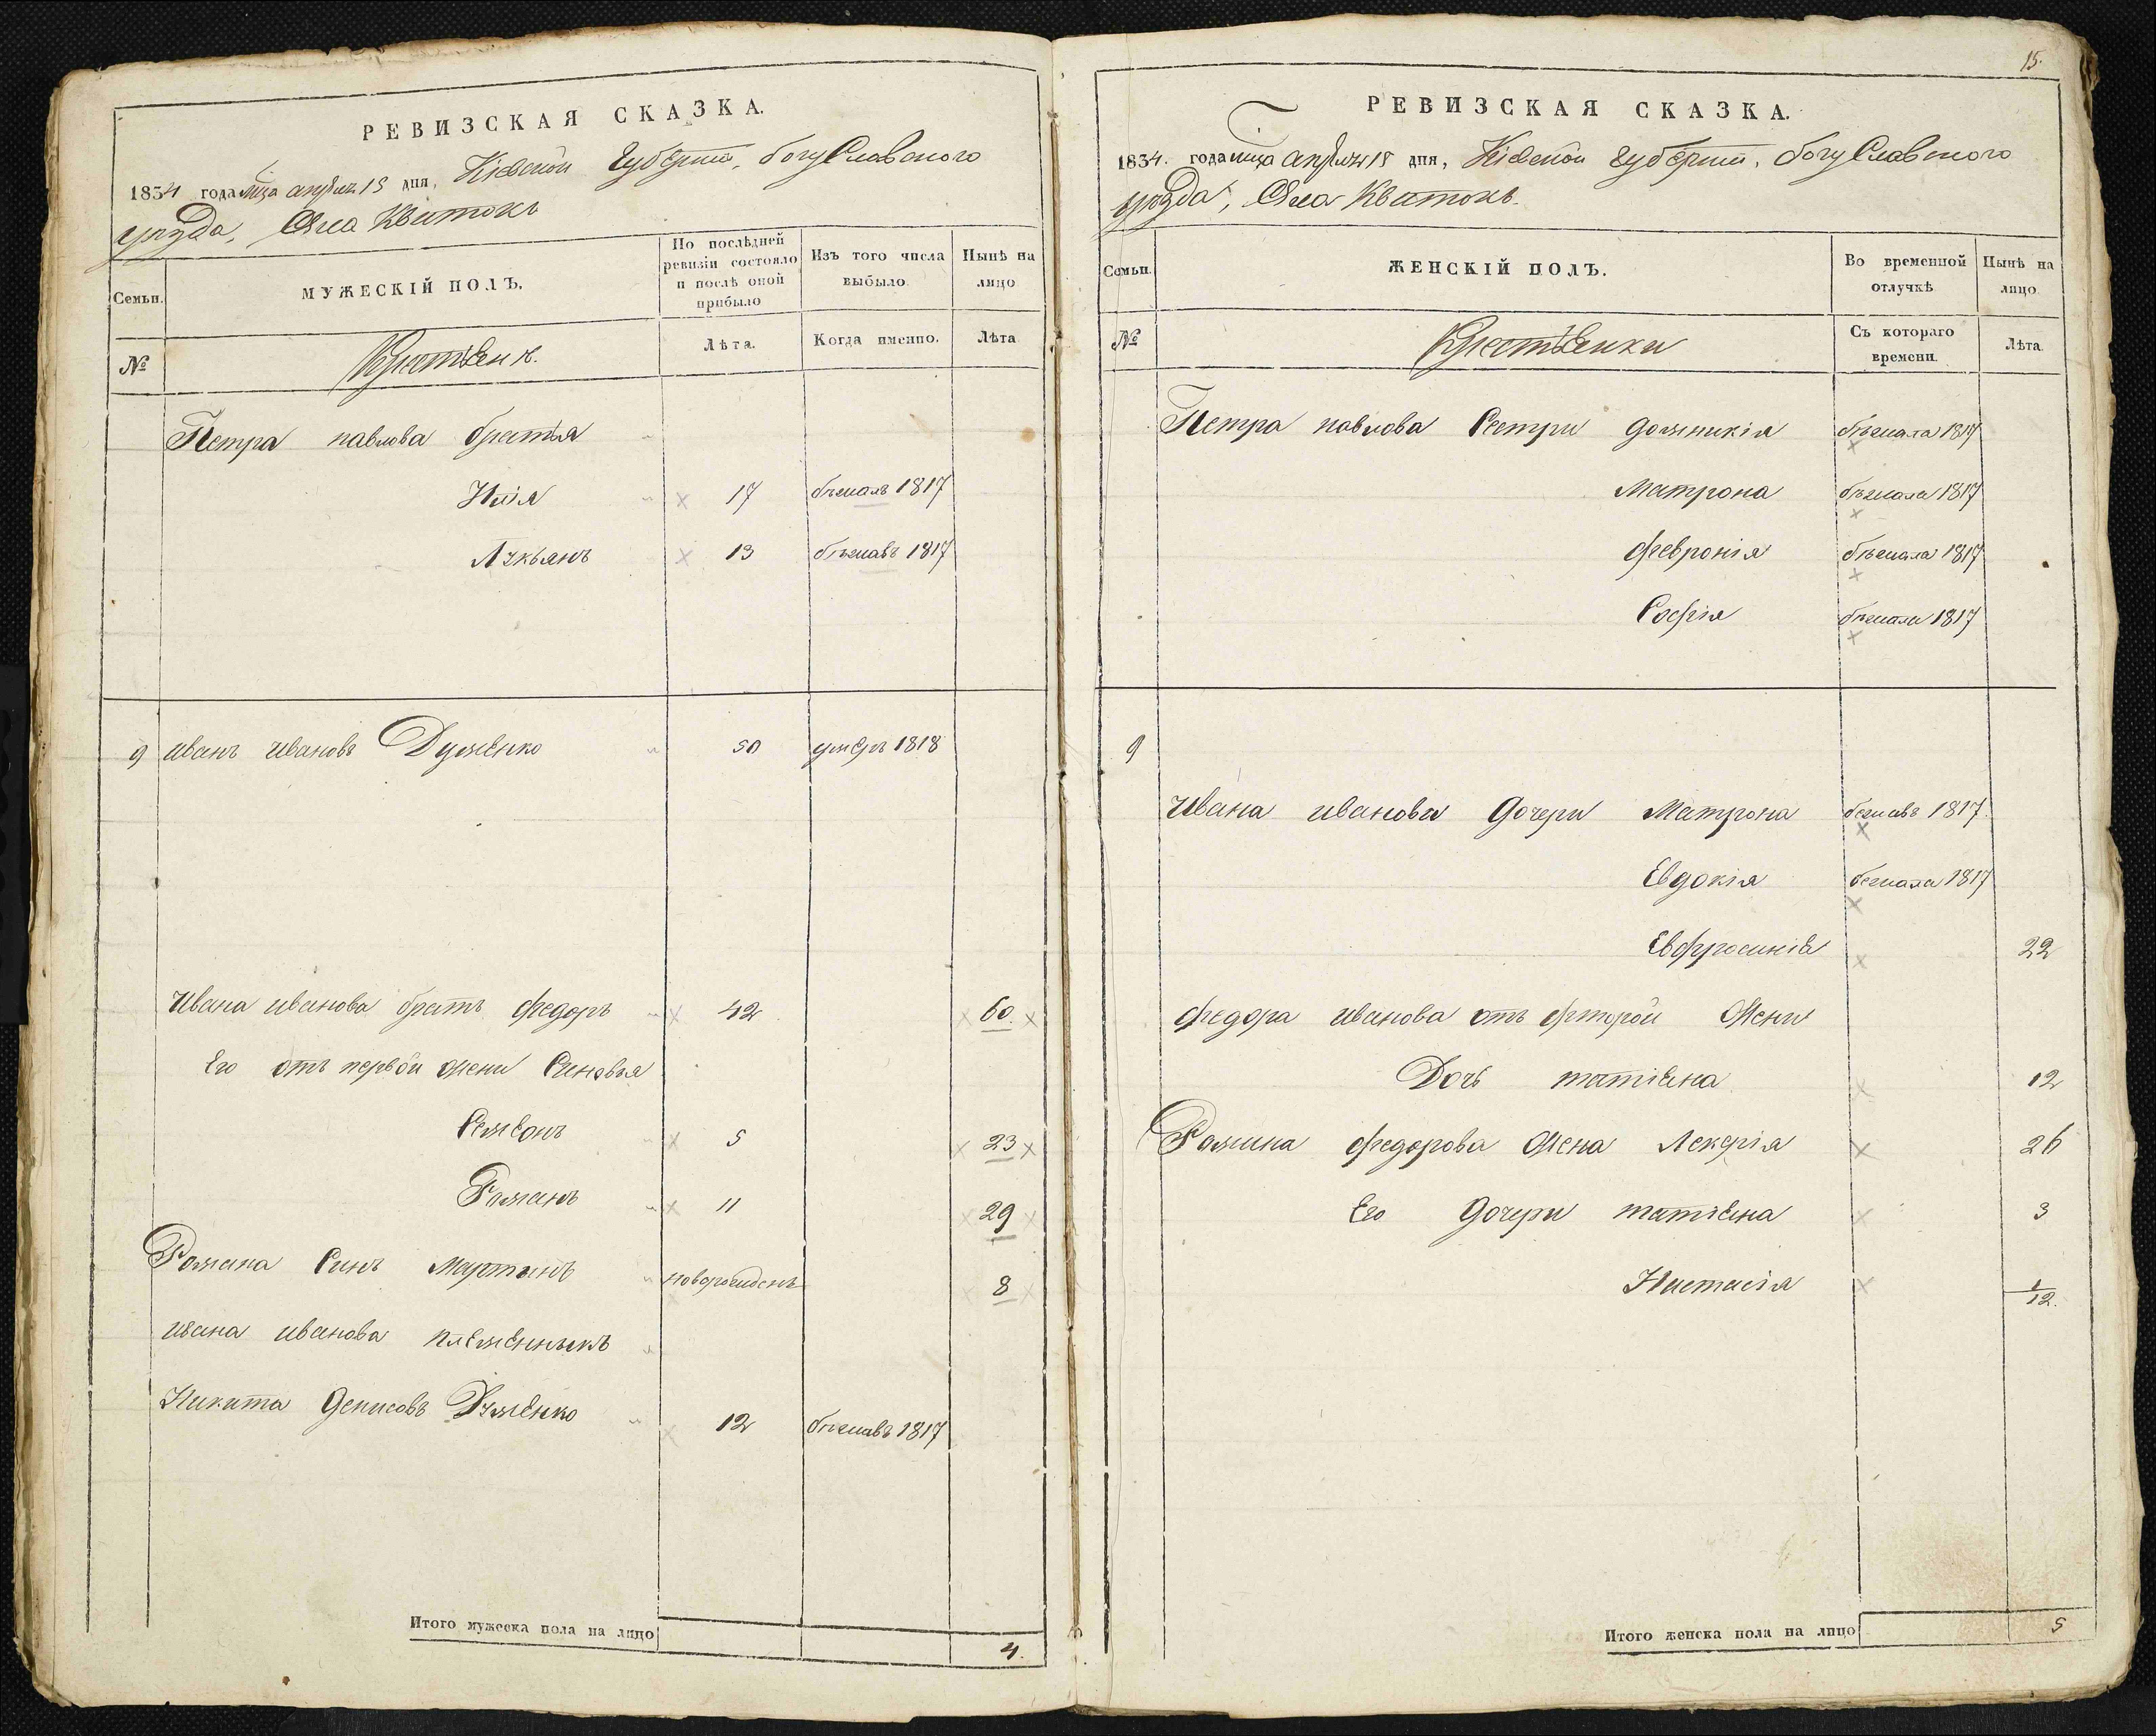 РЕВИЗСКАЯ СКАЗКА.
1834 года мца апреля 18 дня, Кіевской губернии, богуславского
уезда, Села Квитокъ
Семьи.
МУЖЕСКІЙ ПОЛЪ.
По послѣдней ревизіи состояло и послѣ оной прибыло
Изъ того числа выбыло
Нынѣ на лицо
№
Крестьяне.
Лѣта.
Когда именно.
Лѣта
Петра павлова братья
Илія 17 бежалъ 1817
Лукьянъ 13 бежавъ 1817
9 иванъ ивановъ Думенко 50 умеръ 1818
Ивана иванова братъ федоръ 42 60.
Его отъ первой жени Синовья
Семѣонъ 5 23
Романъ 11 29
Романа Синъ Мартынъ новорожденъ 8
ивана иванова племенныкъ
Никита денисовъ Думенко 12 бежавъ 1817
Итого мужеска пола на лицо 4.
15.
РЕВИЗСКАЯ СКАЗКА.
1834. года мца апреля 18 дня, Кіевской губернии, богуславского
уезда, Села Квитокъ.
Семьи.
ЖЕНСКІЙ ПОЛЪ.
Во временной отлучкѣ
Нынѣ на лицо
№
Крестьянки
Съ котораго времени.
Лѣта.
Петра павлова Сестри домникія бежала 1817
Матрона бежала 1817
февронія бежала 1817
Софія бежала 1817
9
Ивана иванова дочери Матрона бежавъ 1817
Евдокія бежала 1817
Евфросинія 22
федора иванова отъ фторой жени
Дочь татіяна 12
Романа федорова жена Лекерія 26
Его дочери татіяна 3
Настасія 1/12.
Итого женска пола на лицо 5